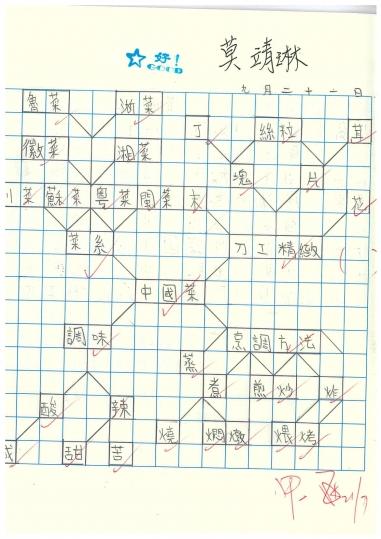 好!
GOOD
莫靖琳
九月二十一日
魯菜 浙菜
丁 絲 粒 茸
徽菜 湘菜
塊 片
川菜 蘇菜 粵菜 閩菜 末 花
菜系 刀工精緻
中國菜
調味 烹調方法
蒸 煮 煎 炒 炸
酸 辣
鹹 甜 苦 燒 燜 燉 煨 烤
甲